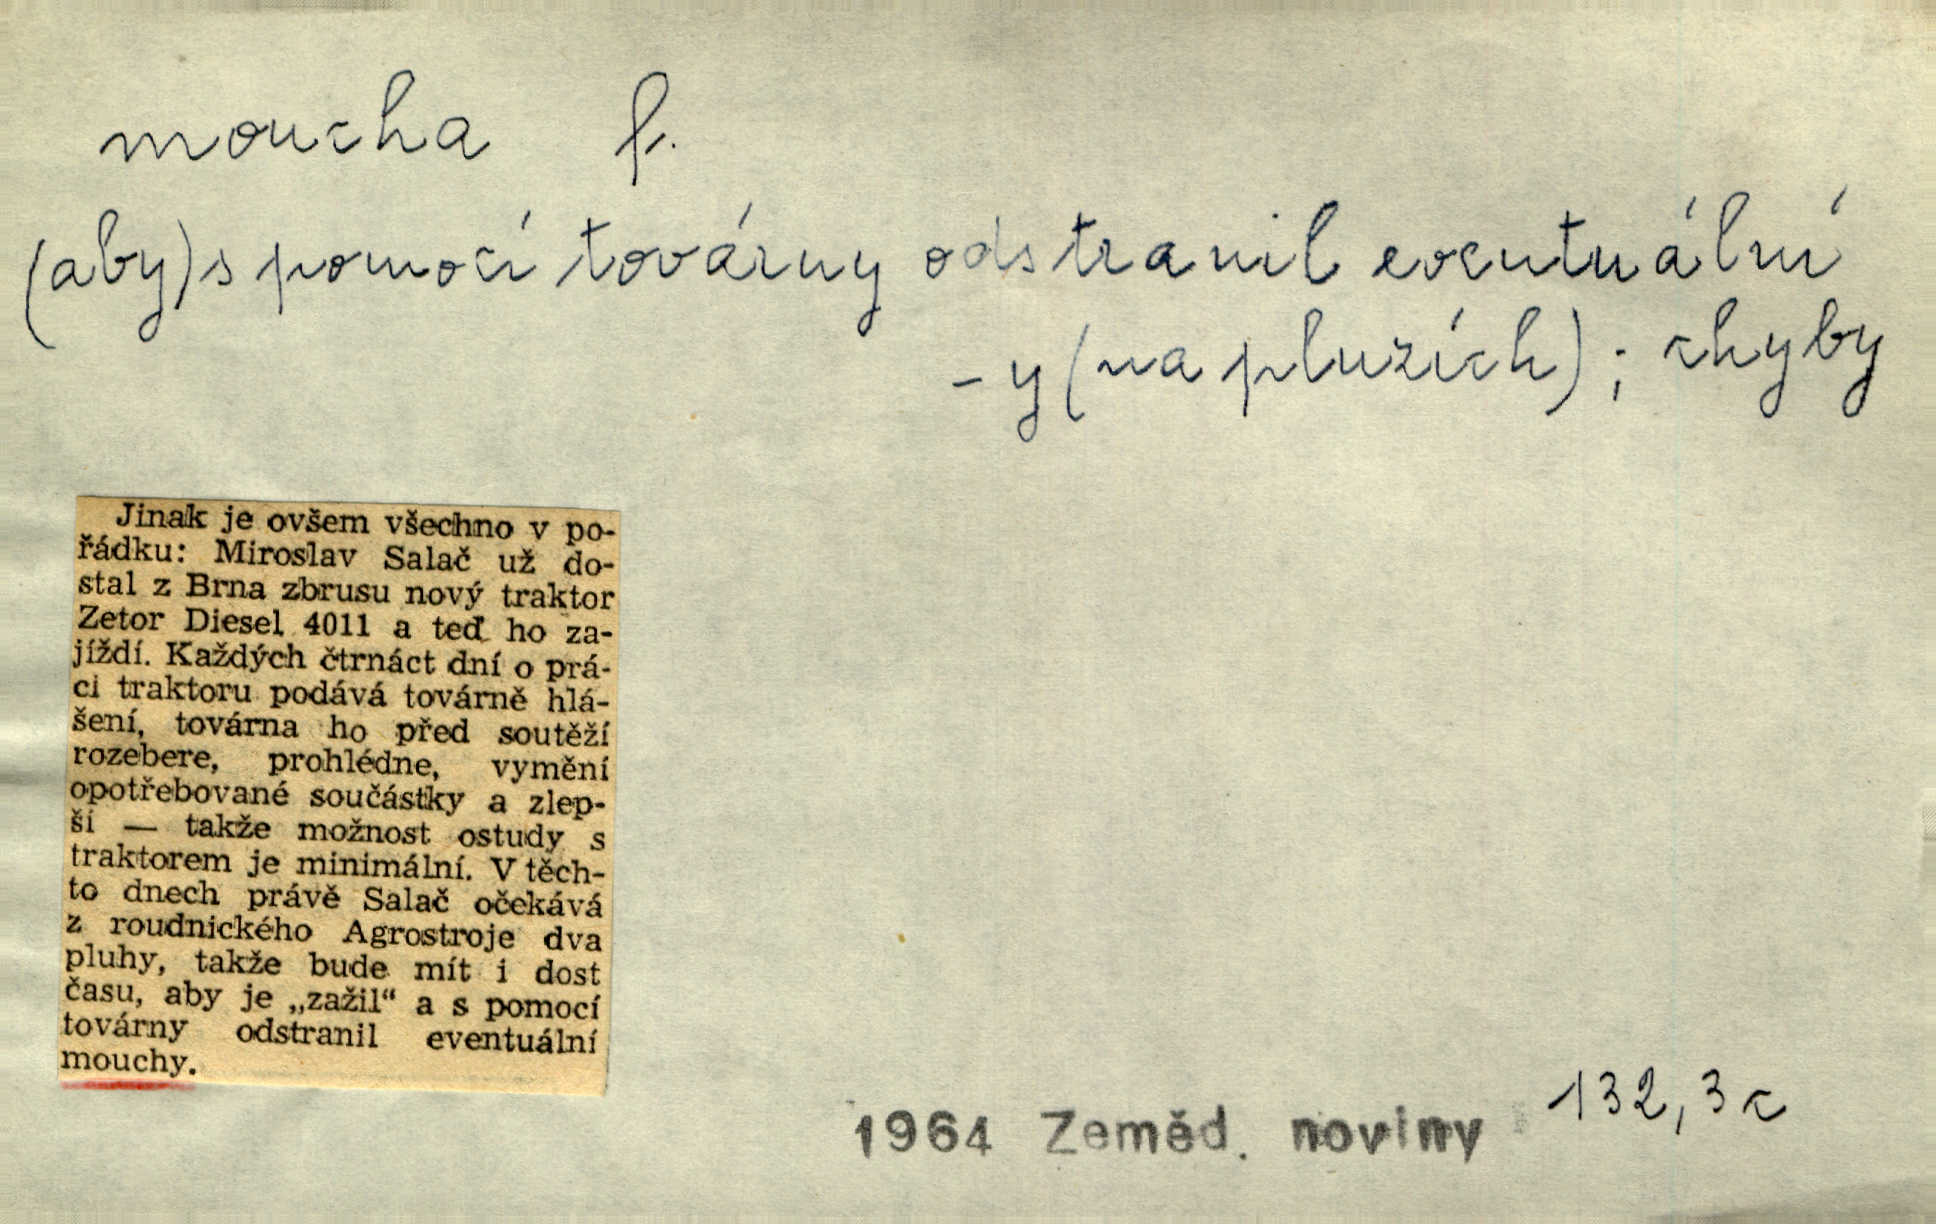 moucha f.
(aby) s pomocí továrny odstranil eventuální
-y (na pluzích); chyby
Jinak je ovšem všechno v po-
řádku: Miroslav Salač už do-
stal z Brna zbrusu nový traktor
Zetor Diesel 4011 a teď ho za-
jíždí. Každých čtrnáct dní o prá-
ci traktoru podává továrně hlá-
šení, továrna ho před soutěží
rozebere, prohlédne, vymění
opotřebované součástky a zlep-
ší — takže možnost ostudy s
traktorem je minimální. V těch-
to dnech právě Salač očekává
z roudnického Agrostroje dva
pluhy, takže bude mít i dost
času, aby je „zažil“ a s pomocí
továrny odstranil eventuální
mouchy.
1964 Zeměd. noviny 132, 3c